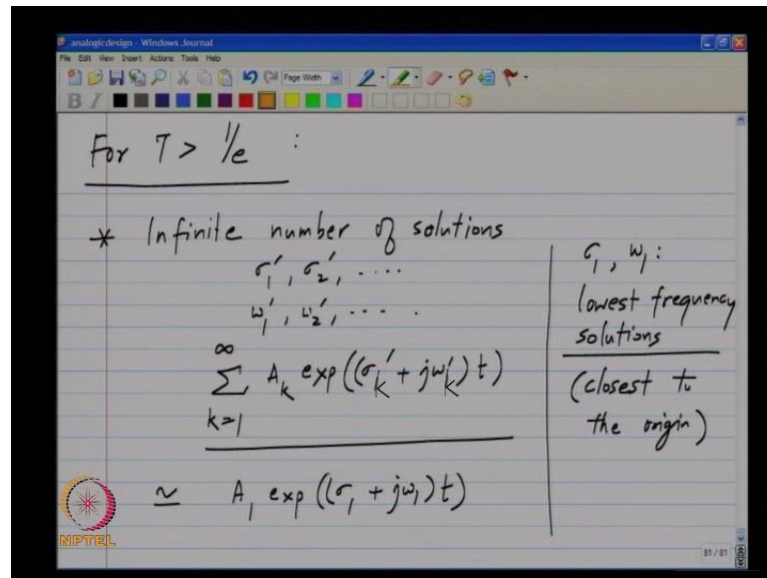 analogicdesign - Windows Journal
File Edit View Insert Actions Tools Help
Page Width
B I
For T > 1/e :
* Infinite number of solutions
σ₁', σ₂', ....
ω₁', ω₂', ....
∞
∑ Aₖ exp((σₖ' + jωₖ')t)
k=1
≃ A₁ exp((σ₁ + jω₁)t)
σ₁, ω₁:
lowest frequency
solutions
(closest to
the origin)
NPTEL
81 / 81